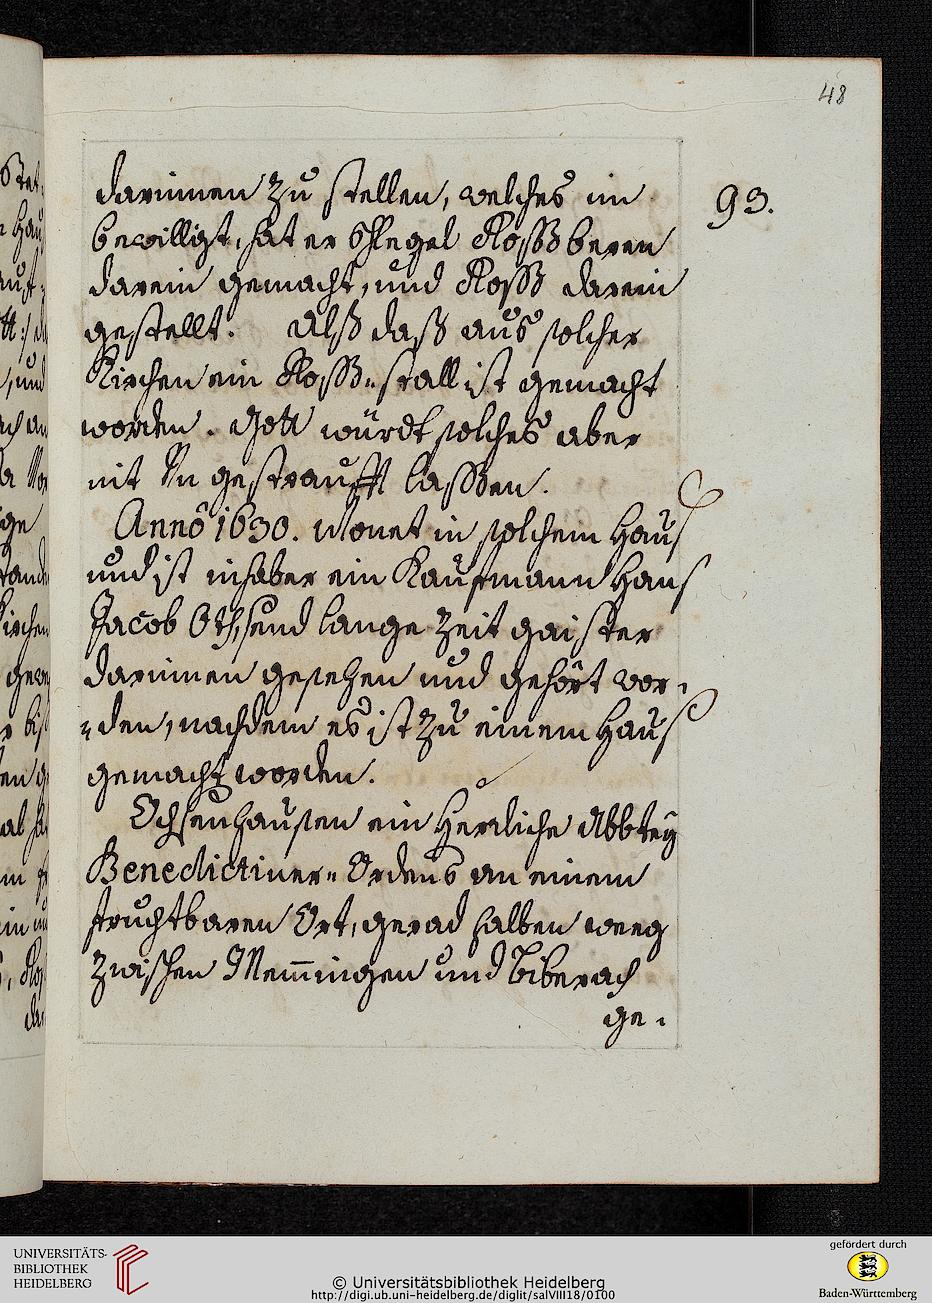 48
93.
darinnen zu stellen, welches im
bewilligt, hat er Schlegel Roßbaren
darein gemacht, und Roß darein
gestellt. Alß daß aus solcher
Kirchen ein Roß-stall ist gemacht
worden. Gott würdt solches aber
nit Un gestraufft laßen.
Anno 1630. Wonet in solchem Hauß
und ist inhaber ein Kaufmann Hans
Jacob send lange Zeit gaister
darinnen gesehen und gehört wor-
-den, nachdem es ist zu einem Hauß
gemacht worden.
Ochsenhausen ein Herrliche Abbtey
Benedictiner-Ordens an einem
fruchtbaren Ort, gerad halben weeg
zwischen Memingen und Biberach
ge-
UNIVERSITÄTS-
BIBLIOTHEK
HEIDELBERG
© Universitätsbibliothek Heidelberg
http://digi.ub.uni-heidelberg.de/diglit/salVIII18/0100
gefördert durch
Baden-Württemberg